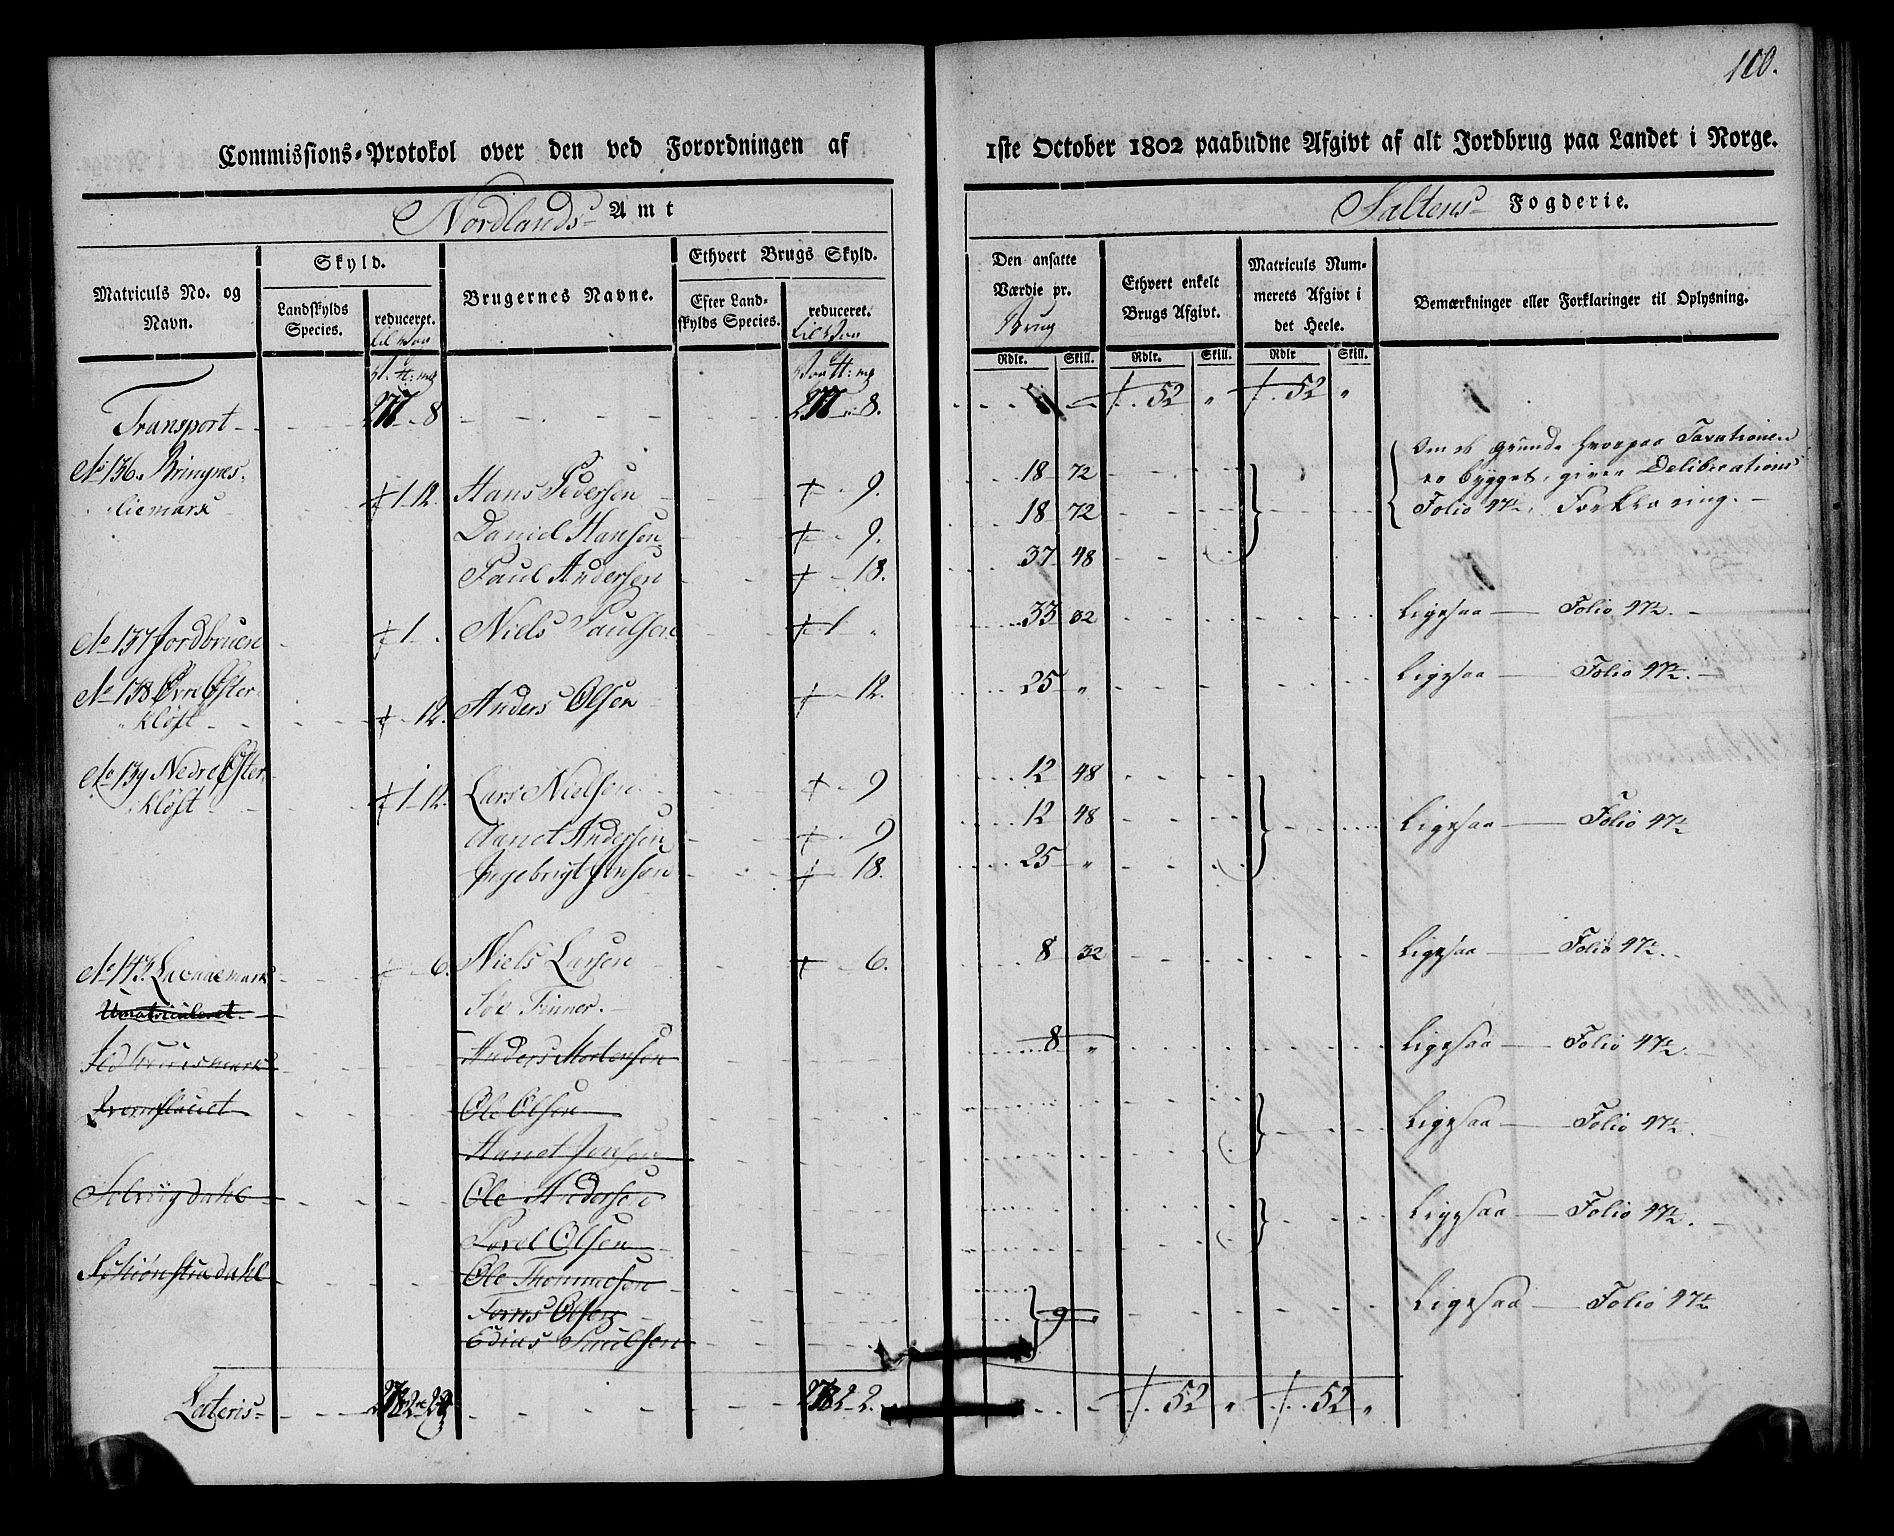 100.
Commissions-Protokol over den ved Forordningen af 1ste October 1802 paabudne Afgivt af alt Jordbrug paa Landet i Norge.
Nordlands Amt
Saltens Fogderie.
Matriculs No. og Navn.
Skyld.
Landskylds Species.
reduceret. til Vog
Brugernes Navne.
Ethvert Brugs Skyld.
Efter Landskylds Species.
reduceret. til Vog
Den ansatte Værdie pr. Brug
Rdlr. Skill.
Ethvert enkelt Brugs Afgivt.
Rdlr. Skill.
Matriculs Nummerets Afgivt i det Heele.
Rdlr Skill.
Bemærkninger eller Forklaringer til Oplysning.
Transport 8 8. 52 „ 52 „
No 136. Bringnes 1 12. Hans Pedersen 9. 18 72
liemark Daniel Hansen 9. 18 72
Paul Andersen 18. 37 48
grunde hvorpaa Taxationen
er bygget, giver Deliberations
Folio 47 Forklaring.
No 137 Jordbruen 1 Niels Paulsen 1 „ 33 32 Ligesaa Folio 47
No 138 Øvre Øster
kløft 12. Anders Olsen 12. 25 „ Ligesaa Folio 47
No 139 Nedre Øster
kløft 1 12. Lars Nielsen 9 12 48
Anders­sen 9 12 48 Ligesaa Folio 47
Ingebrigt Jensen 18. 25 „
No 143. 6. Niels Larsen 6. 8 32 Ligesaa Folio 47
Umatriculeret Søe Finner.
Anders Mortensen 8 „ Ligesaa Folio 47
Ole Olsen Ligesaa Folio 47
Jensen
Solvigdahl Ole Andersen Ligesaa Folio 47
Olsen
Ole Thommesen
Olsen 9 Ligesaa Folio 47
Paulsen
Lateris 2. 52 „ 52 „